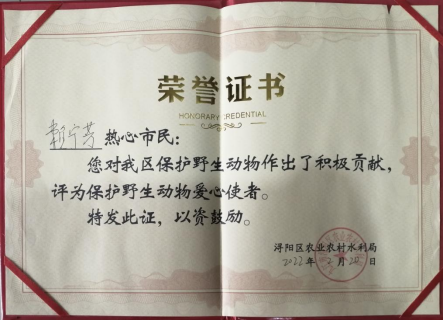 荣誉证书
HONORARY CREDENTIAL
宁芳 热心市民:
您对我区保护野生动物作出了积极贡献,
评为保护野生动物爱心使者。
特发此证,以资鼓励。
浔阳区农业农村水利局
2022年2月20日